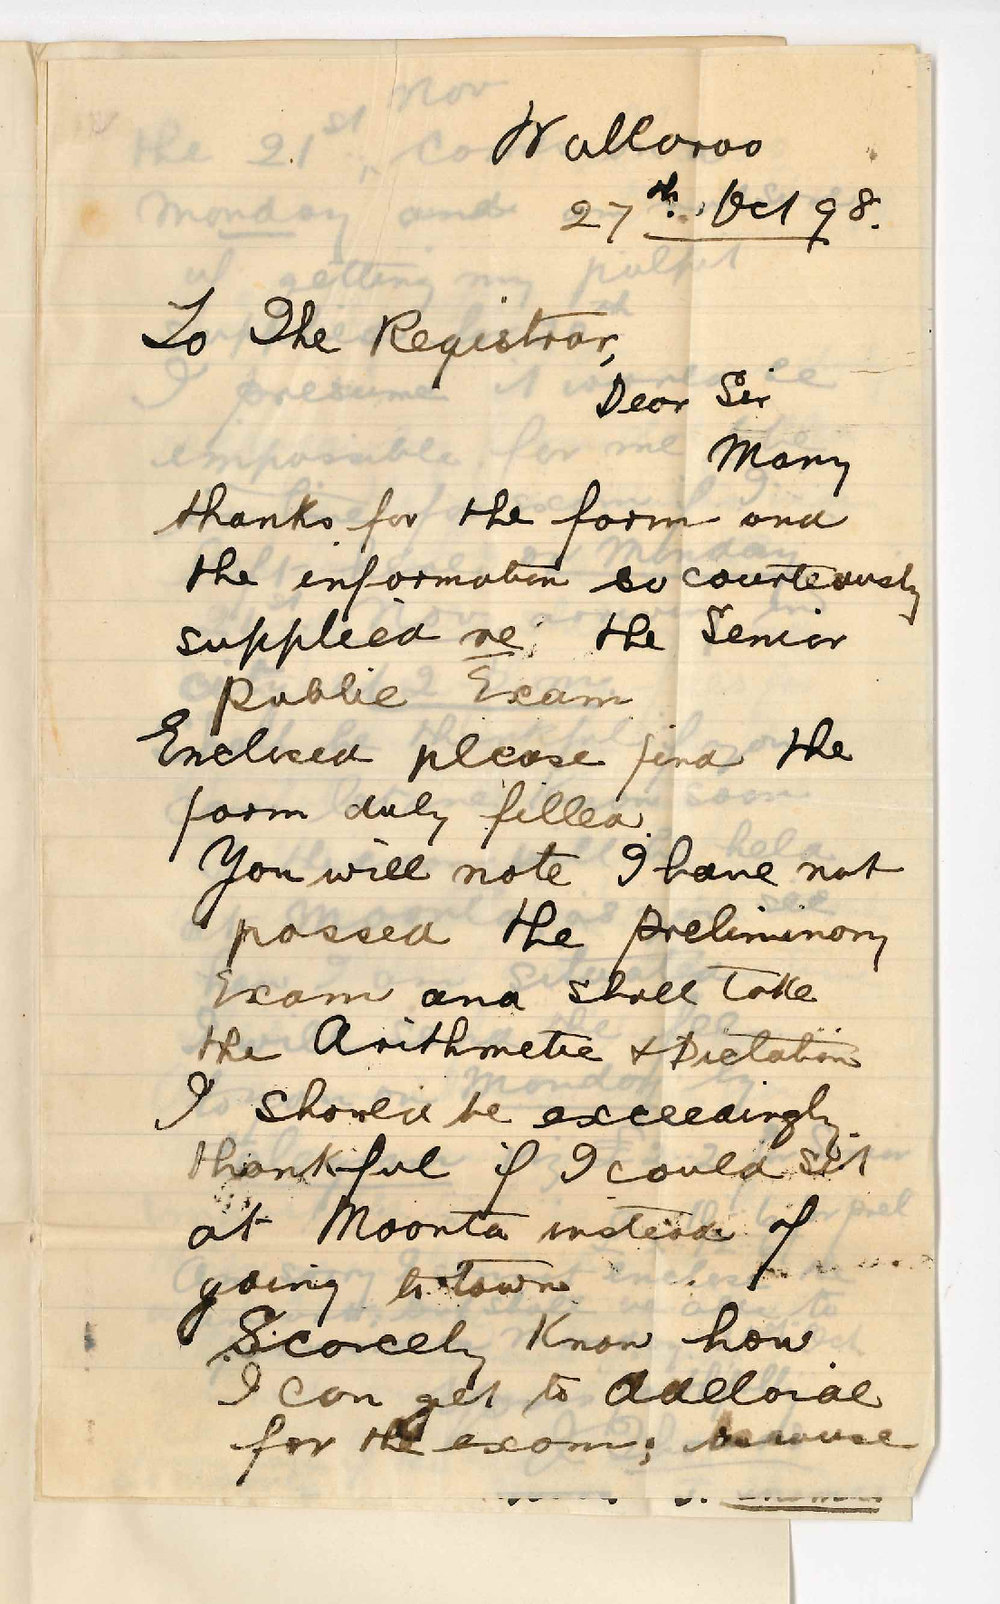 Wallaroo
27th Oct 98.
To The Registrar,
Dear Sir
Many
thanks for the form and
the information so courteously
supplied re; the Senior
Public Exam
Enclosed please find the
form duly filled.
You will note I have not
passed the preliminary
Exam and shall take
the Arithmetic & Dictation
I should be exceedingly
thankful if I could sit
at Moonta instead of
going to town
Scarcely know how
I can get to Adelaide
for the exam; because